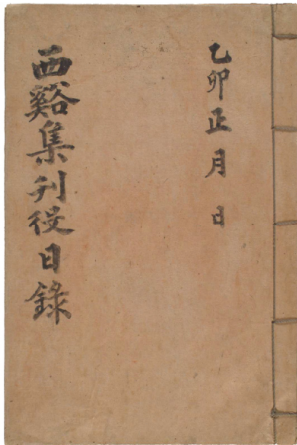 乙卯正月 日
西谿集刋役日錄